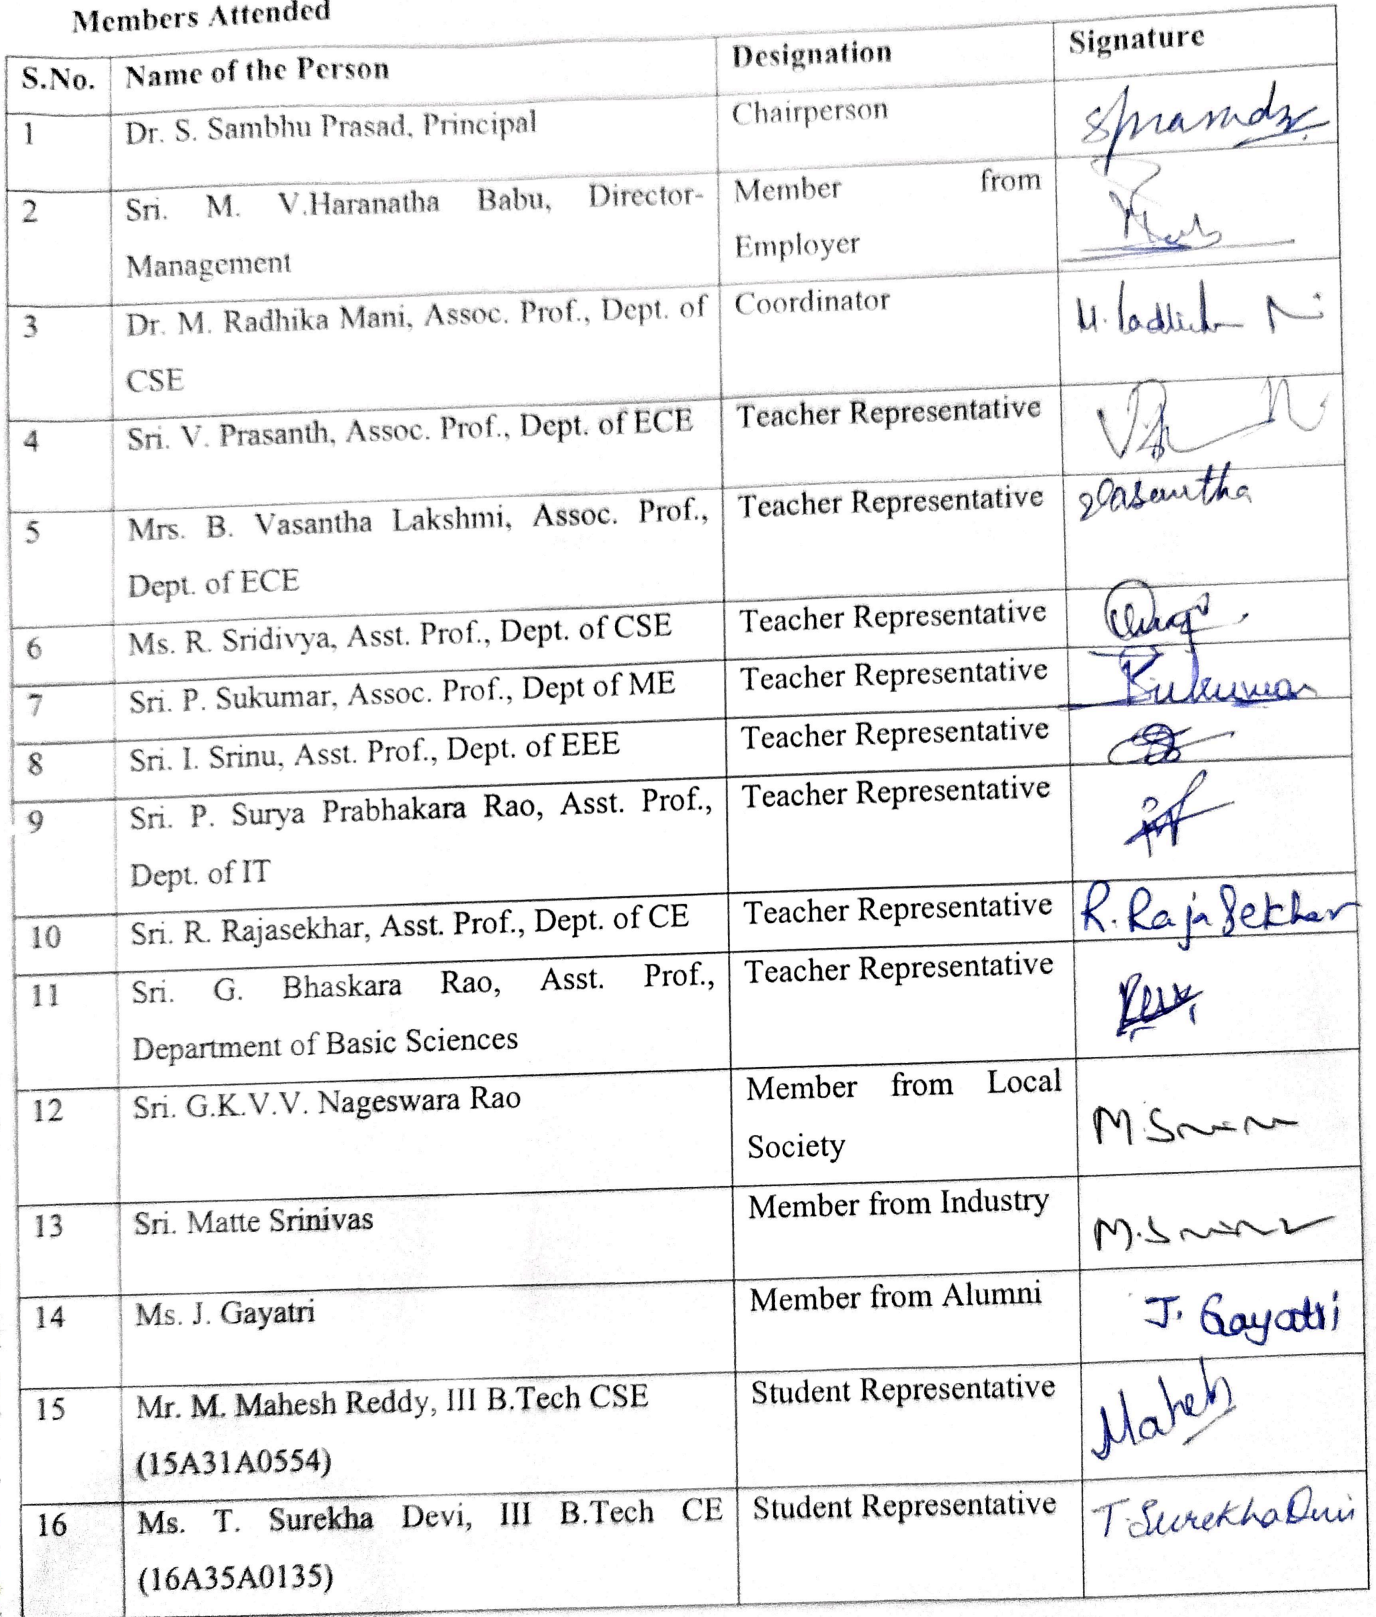 Members Attended
S.No. Name of the Person Designation Signature
1 Dr. S. Sambhu Prasad, Principal Chairperson
2 Sri. M. V.Haranatha Babu, Director- Member from
Management Employer
3 Dr. M. Radhika Mani, Assoc. Prof., Dept. of Coordinator
CSE
4 Sri. V. Prasanth, Assoc. Prof., Dept. of ECE Teacher Representative
5 Mrs. B. Vasantha Lakshmi, Assoc. Prof., Teacher Representative Vasantha
Dept. of ECE
6 Ms. R. Sridivya, Asst. Prof., Dept. of CSE Teacher Representative
7 Sri. P. Sukumar, Assoc. Prof., Dept of ME Teacher Representative Sukumar
8 Sri. I. Srinu, Asst. Prof., Dept. of EEE Teacher Representative
9 Sri. P. Surya Prabhakara Rao, Asst. Prof., Teacher Representative
Dept. of IT
10 Sri. R. Rajasekhar, Asst. Prof., Dept. of CE Teacher Representative R. Raja Sekhar
11 Sri. G. Bhaskara Rao, Asst. Prof., Teacher Representative
Department of Basic Sciences
12 Sri. G.K.V.V. Nageswara Rao Member from Local
Society
13 Sri. Matte Srinivas Member from Industry
14 Ms. J. Gayatri Member from Alumni J. Gayatri
15 Mr. M. Mahesh Reddy, III B.Tech CSE Student Representative Mahesh
(15A31A0554)
16 Ms. T. Surekha Devi, III B.Tech CE Student Representative T. Surekha Devi
(16A35A0135)